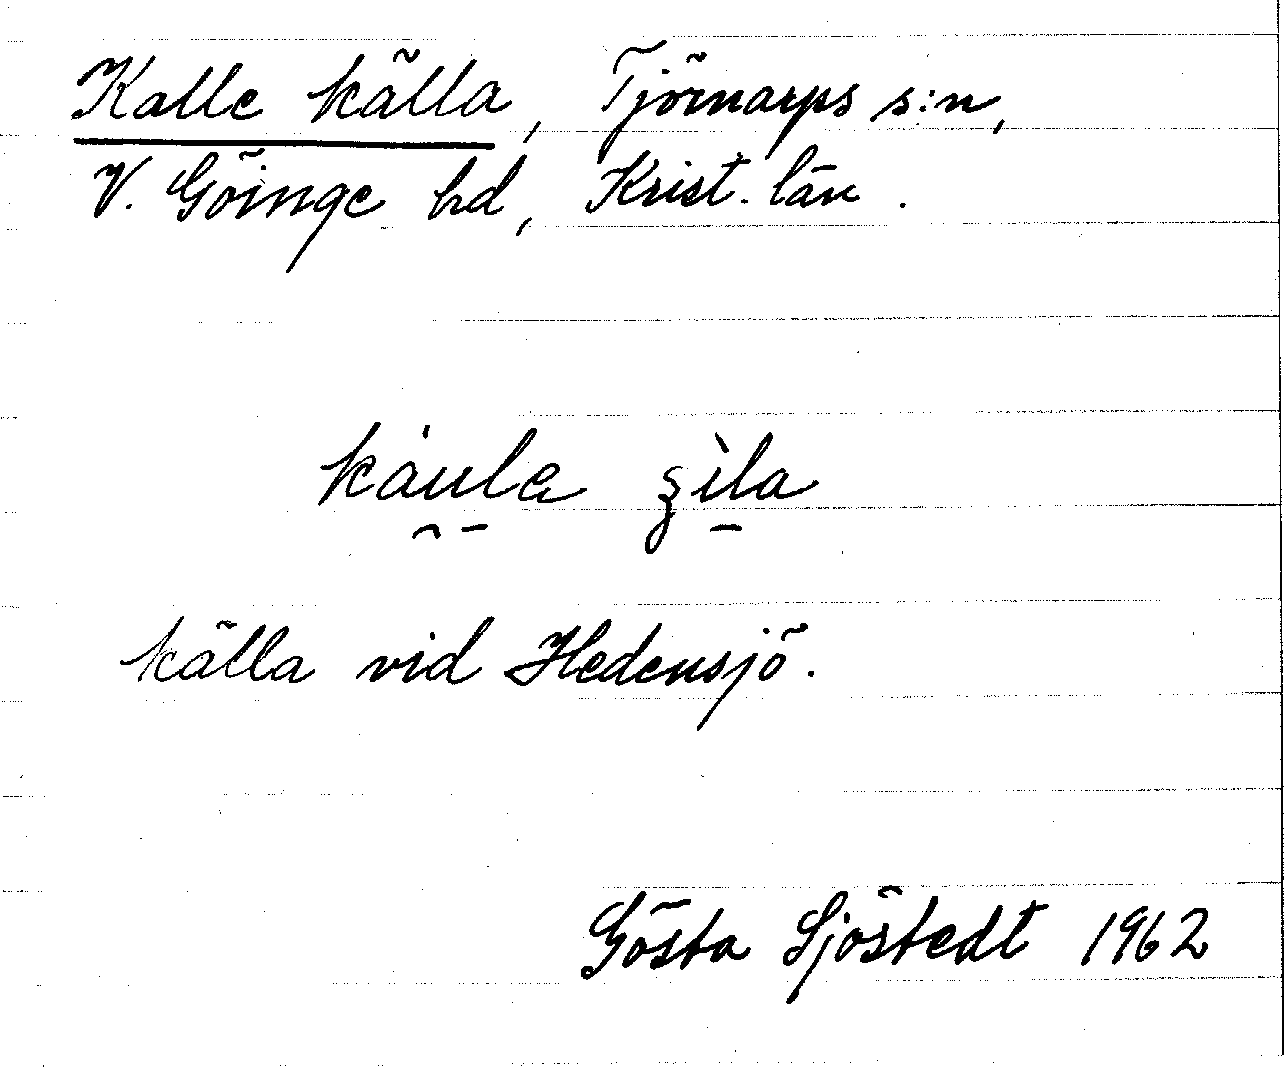 Kalle källa, Tjörnarps s:n,
V. Göinge hd, Krist. län.
källa vid Hedensjö.
Gösta Sjöstedt 1962